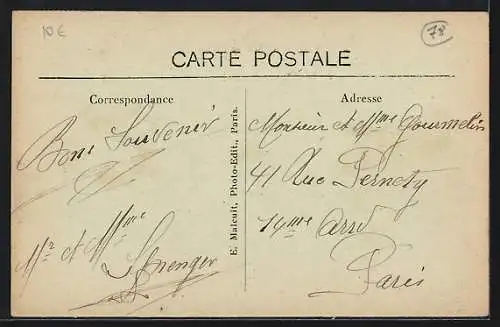 10€
78
CARTE POSTALE
Correspondance
Adresse
Bons Souvenir
Mr et Mme
E. Malcuit, Photo-Edit., Paris.
Monsieur et Mme Gourmelin
41 Rue Pernety
14me Arrd
Paris